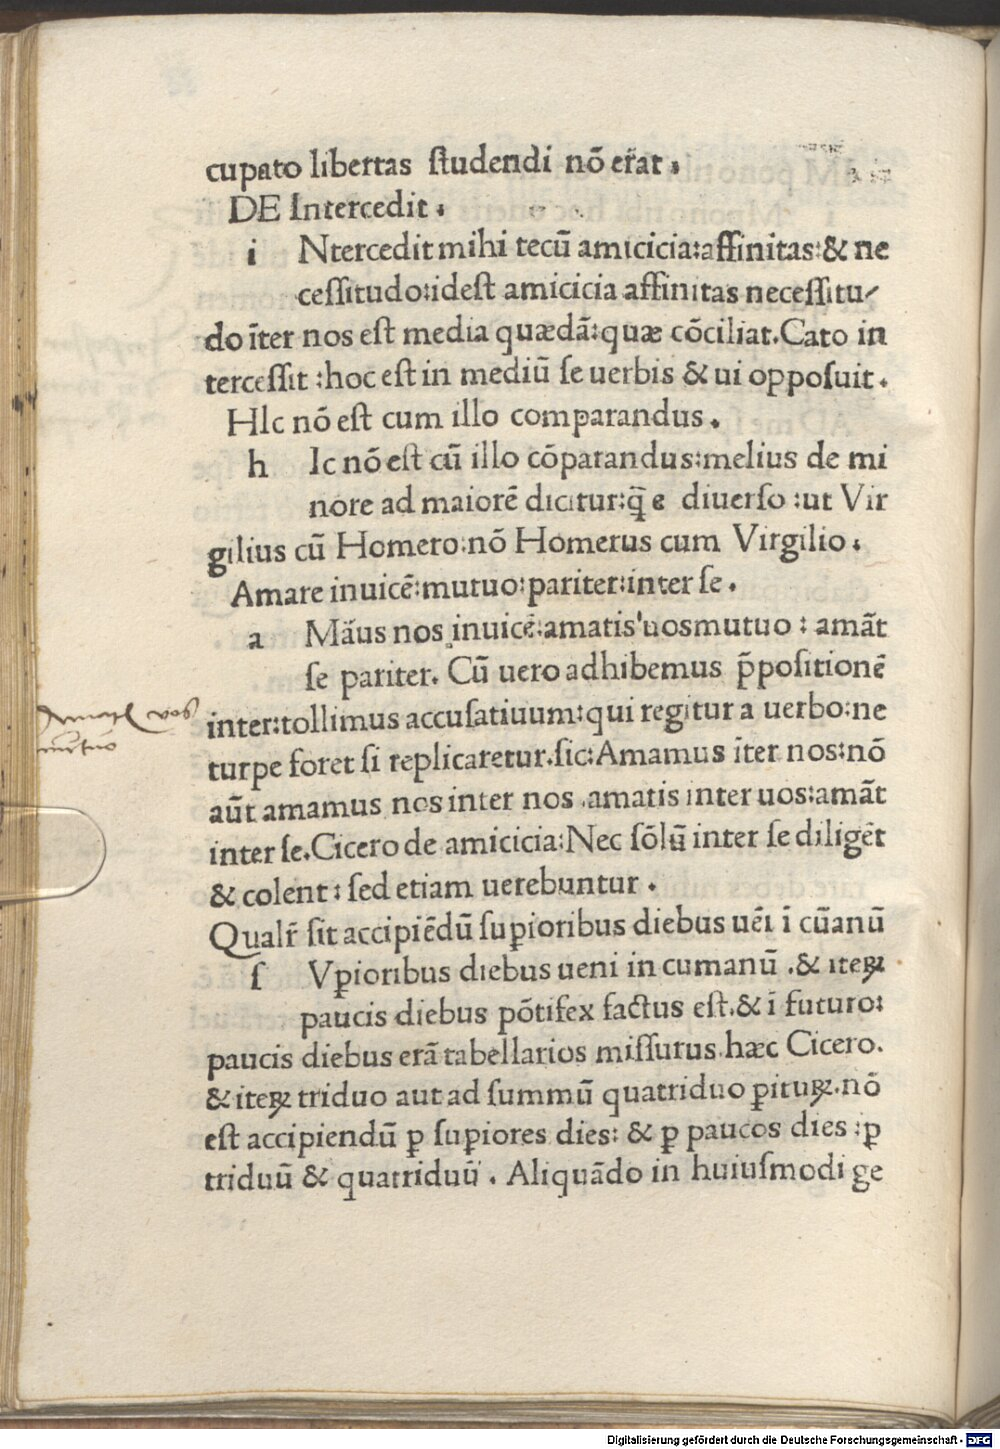 cupato libertas ſtudendi nõ er̃at.
DE Intercedit.
i Ntercedit mihi tecũ amicicia:affinitas:& ne
ceſſitudo:ideſt amicicia affinitas neceſſitu/
do ĩter nos eſt media quædã:quæ cõciliat.Cato in
terceſſit :hoc eſt in mediũ ſe uerbis & ui oppoſuit.
HIc nõ eſt cum illo comparandus.
h Ic nõ eſt cũ illo cõparandus:melius de mi
nore ad maiorẽ dicitur:q̃ e diuerſo :ut Vir
gilius cũ Homero:nõ Homerus cum Virgilio.
Amare inuicẽ:mutuo:pariter:inter ſe.
a Mãus nos inuicẽ:amatis uosmutuo : amãt
ſe pariter. Cũ uero adhibemus p̃poſitionẽ
inter:tollimus accuſatiuum:qui regitur a uerbo:ne
turpe foret ſi replicaretur.ſic:Amamus ĩter nos:nõ
aũt amamus nos inter nos .amatis inter uos:amãt
inter ſe.Cicero de amicicia:Nec ſõlũ inter ſe diligẽt
& colent : ſed etiam uerebuntur.
Qualr̃ ſit accipiẽdũ ſuꝑioribus diebus uẽi ĩ cũanũ
ſ Vꝑioribus diebus ueni in cumanũ .& iteꝝ
paucis diebus põtifex factus eſt.& ĩ futuro:
paucis diebus erã tabellarios miſſurus.hæc Cicero.
& iteꝝ triduo aut ad ſummũ quatriduo ꝑituꝝ.nõ
eſt accipiendũ ꝑ ſuꝑiores dies: & ꝑ paucos dies :ꝑ
triduũ & quatriduũ . Aliquãdo in huiuſmodi ge
uos
mutuo
Digitalisierung gefördert durch die Deutsche Forschungsgemeinschaft - DFG